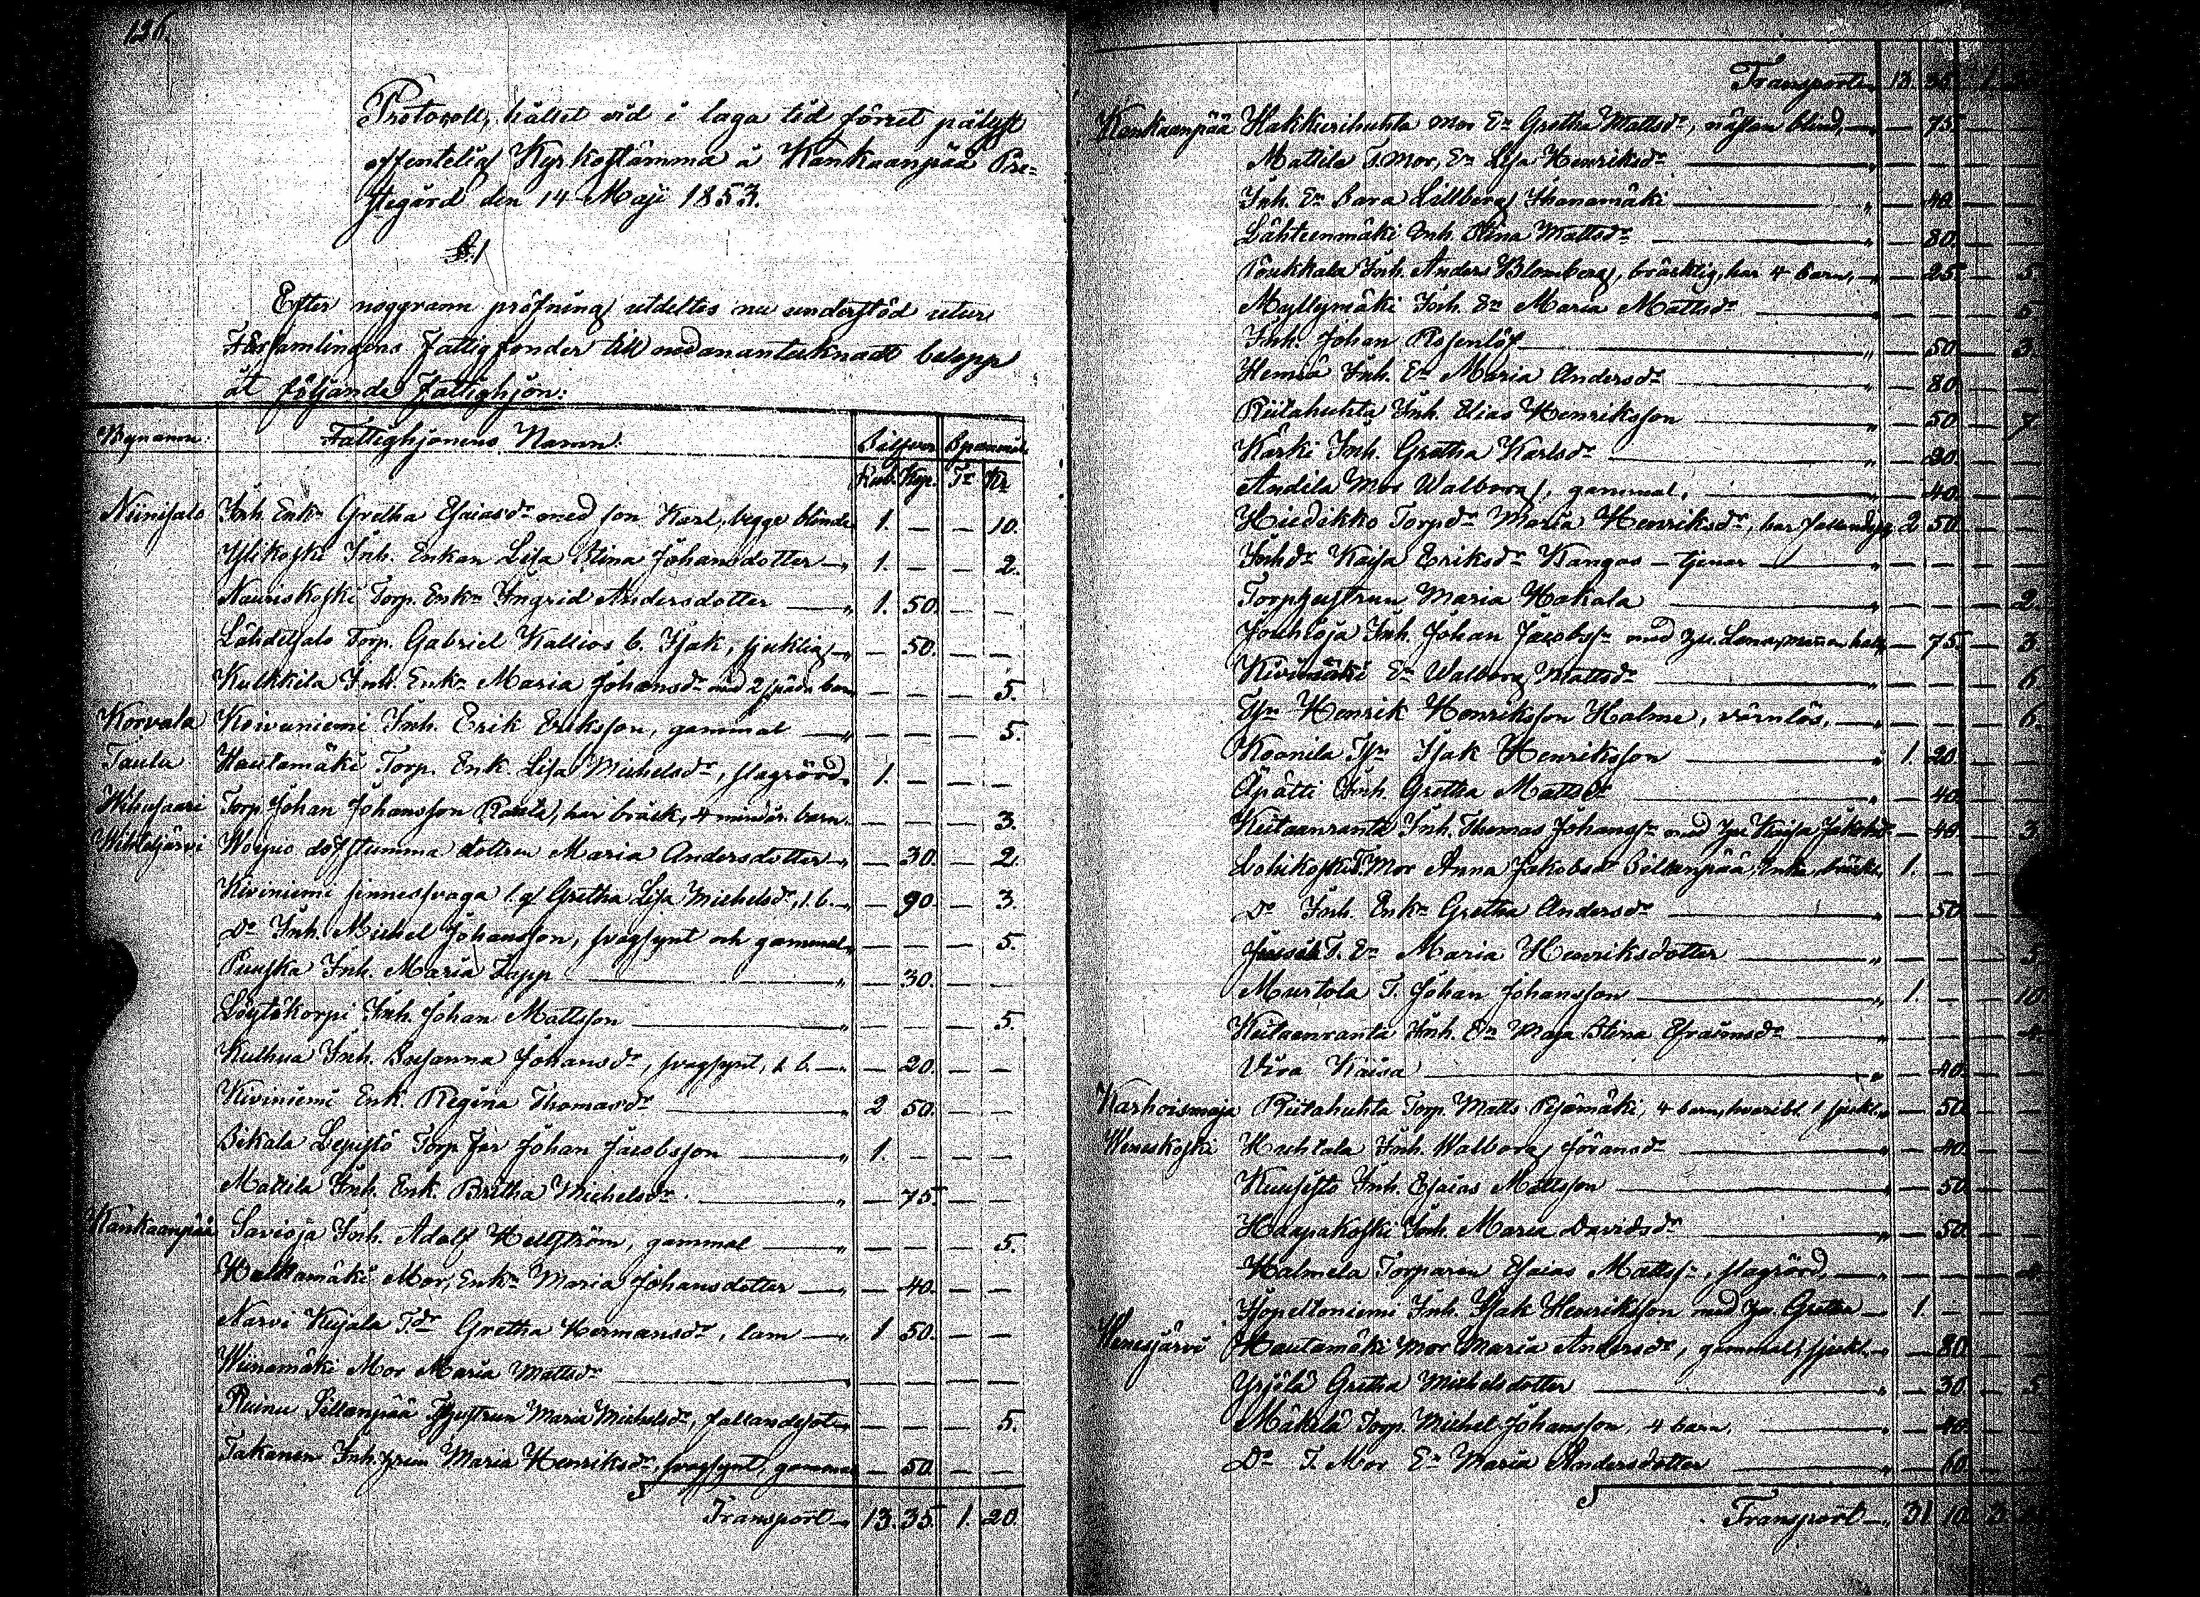 126.
Protocoll, hållet vid i laga tid förut pålyst
offentelig Kyrkostämma å Kankaanpää Pre-
stegård den 14 Maji 1853.
§.1
Efter noggrann pröfning utdeltes nu understöd utur
Församlingens Fattigfonder till nedanantecknadt belopp
åt följande Fattighjon:
Bynamn. Fattighjonens Namn. Silfver Spanmål
Rub. Kop. Tr Kr
Niinisalo Inh. Enkn Gretha Esaiasdr med son Karl, begge blinde 1. — — 10.
Ylikoski Inh. Enkan Lisa Stina Johansdotter —„ 1. — — 2.
Nauriskoski Torp. Enkn Ingrid Andersdotter —„ 1. 50. — —
Lähdesalo Torp. Gabriel Kallios b. Isak, sjuklig —„ — 50. — —
Kulkkila Inh. Enkn Maria Johansdr med 2 späda barn — — — 5.
Korvala Koivuniemi Inh. Erik Eriksson, gammal —„ — — — 5.
Taula Hautamäki Torp. Enk. Lisa Michelsdr, slagrörd 1. — — —
Wihusaari Torp. Johan Johansson Rauta, har bråck, 4 minder. barn — — — 3.
Wihteljärvi Woipio döfstumma dottren Maria Andersdotter —„ — 30. — 2.
Kiviniemi sinnessvaga l. q. Gretha Lisa Michelsdr, 1. b. —„ — 90. — 3.
Do Inh. Michel Johansson, svagsynt och gammal — — — 5.
Puuska Inh. Maria Tapp —„ — 30. — —
Löytökorpi Inh. Johan Mattsson —„ — — — 5.
Kulhua Inh. Susanna Johansdr, svagsynt, 1 b. —„ — 20. — —
Kiviniemi Enk. Regina Thomasdr — 2 50. — —
Sikala Lepistö Torp. Johan Jacobsson —„ 1. — — —
Mattila Inh. Enk. Britha Michelsdr —„ — 75. — —
Kankaanpää Savioja Inh. Adolf Hellström, gammal —„ — — — 5.
Hautamäki Mor, Enkn Maria Johansdotter —„ — 40. — —
Narvi Kujala T.dr Gretha Hermansdr, lam —„ 1 50. — —
Wiinamäki Mor Maria Mattsdr —„ — — — —
Ruinu Sillanpää Maria Michelsdr, fallandesot — — — 5.
Takanen Inh. Maria Henriksdr, svagsynt, gammal — 50. — —
Transport —„ 13. 35. 1. 20.
Transport 13. 35. 1.
Kankaanpää Hakkerihuhta Mor En Gretha Mattsdr, nästan blind, — 75. — —
Mattila T. Mor, En Lisa Henriksdr —„ — — — —
Inh. En Sara Lillberg Ihanamäki —„ — 40. — —
Lähteenmäki Inh. Stina Mattsdr —„ — 80. — —
Poukkala Inh. Anders Blomberg, bräcklig, har 4 barn, —„ — 25. — 5.
Myllymäki Inh. En Maria Mattsdr —„ — — — 5.
Inh. Johan Rosenlöf —„ — 50. — 3.
Inh. En Maria Andersdr —„ — 80. — —
Riitahuhta Inh. Elias Henriksson —„ — 50. — 7.
Kärki Inh. Gretha Karlsdr —„ — 20. — —
Andila Mor Walborg, gammal, —„ — 40. — —
Hiedikko Torpdr Maria Henriksdr, har fallandesj. 2 50. — —
Inhdr Kaisa Eriksdr Kangas — tjenar —„ — — — —
Torphustrun Maria Hakala —„ — — — 2.
Jouhioja Inh. Johan Jacobsn med hu. Lena, mannen halt — 75. — 3.
Kivimäki En Walborg Mattsdr —„ — — — 6.
Henrik Henriksson Halme, värnlös, —„ — — — 6.
Koonila Isak Henriksson —„ 1. 20. — —
Äpätti Inh. Gretha Mattsdr —„ — 40. — —
Keitaanranta Inh. Thomas Johanss. med hu Kaisa Jakobsdr — 40. — 3.
Lohikoski T. Mor Anna Jakobsdr Sillanpää, Enka, bräckl. 1. — —
Do Inh. Enkn Gretha Andersdr —„ — 50. —
T. En Maria Henriksdotter —„ — — — 5.
Murtola T. Johan Johansson —„ 1. — — 10.
Keitaanranta Inh. En Maja Stina Efraimsdr —„ — — — 4.
Vira Kaisa —„ — 40. — —
Karhoismaja Riitahuhta Torp. Matts Pesämäki, 4 barn, hvaribl. 1 sjukl. — 50. — —
Weneskoski Huhtala Inh. Walborg Göransdr —„ — 40. — —
Kuusisto Inh. Esaias Mattsson —„ — 50. — —
Haapakoski Inh. Maria Davidsdr —„ — 50. — —
Halmela Torparen Esaias Mattsn, slagrörd, —„ — — — 4.
Isopeltoniemi Inh. Isak Henriksson med hu. Gretha —„ 1. — — —
Wenesjärvi Hautamäki Mor Maria Andersdr, gammal, sjukl. —„ — 80. — —
Yrjölä Gretha Michelsdotter —„ — 30. — 5.
Mäkelä Torp. Michel Johansson, 4 barn, —„ — 40. — —
Do T. Mor En Maria Andersdotter —„ — 60. — —
Transport —„ 31. 10. 3.